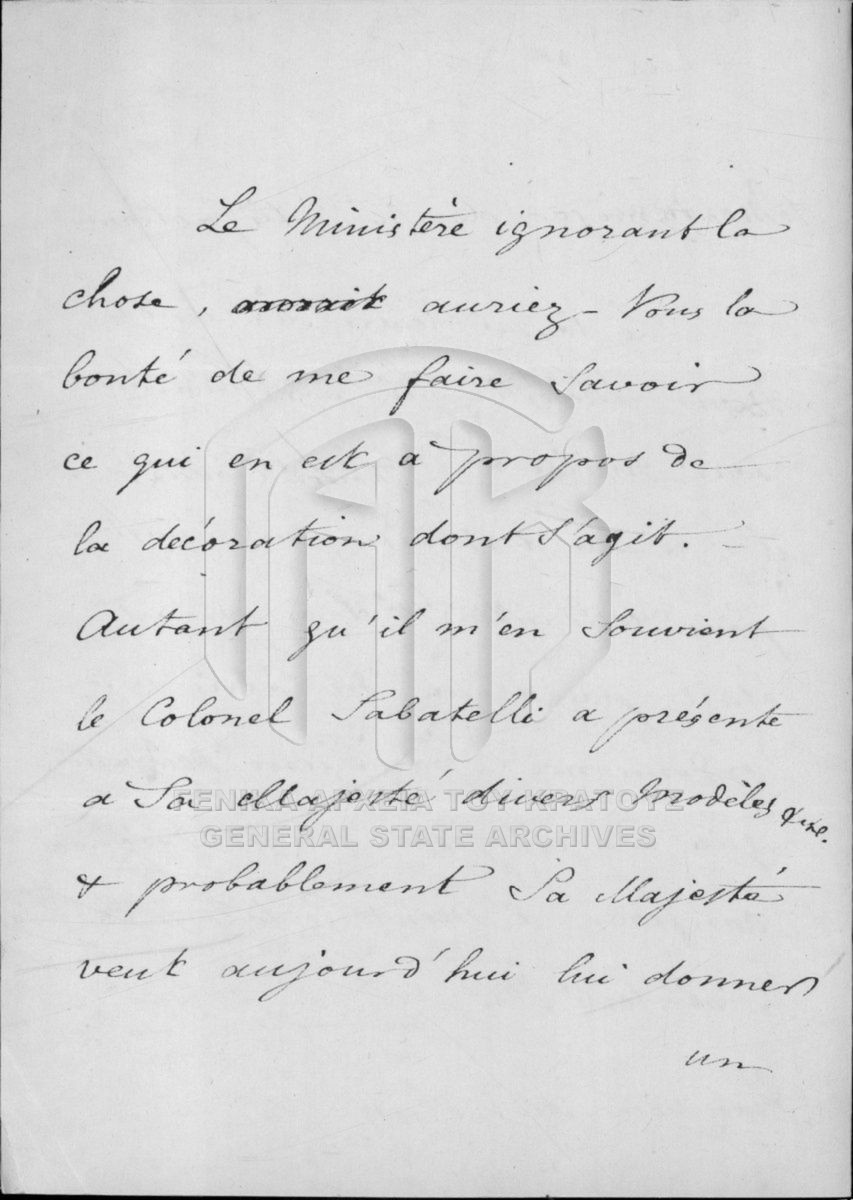 Le Ministère ignorant la
chose, auriez-Vous la
bonté de me faire savoir
ce qui en est a propos de
la décoration dont s'agit.
Autant qu'il m'en souvient
le Colonel Sabatelli a présenté
a Sa Majesté divers modèles
& probablement Sa Majesté
veut aujourd'hui lui donner
un
ΓΕΝΙΚΑ ΑΡΧΕΙΑ ΤΟΥ ΚΡΑΤΟΥΣ
GENERAL STATE ARCHIVES